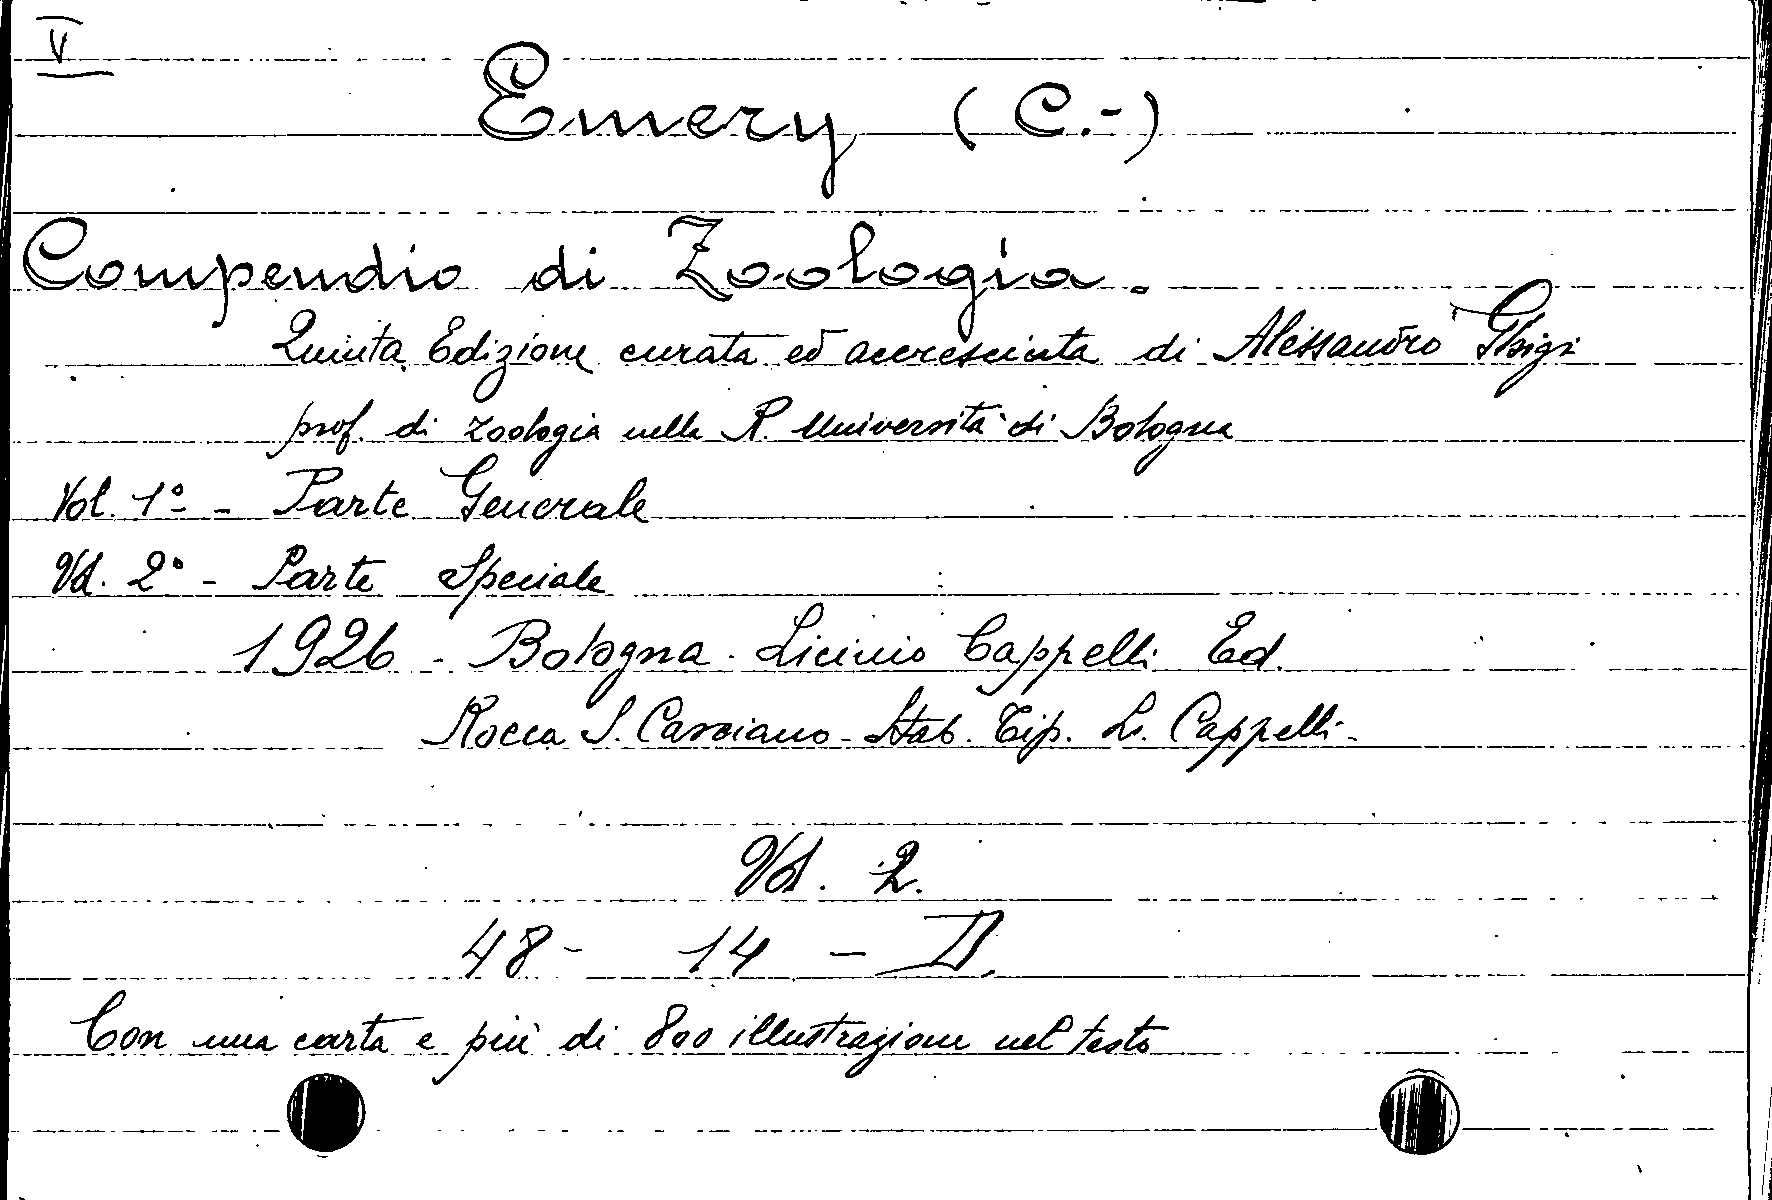 V
Emery (C.-)
Compendio di Zoologia.
Quinta Edizione curata ed accresciuta di Alessandro Ghigi
prof. di zoologia nella R. Università di Bologna
Vol. 1º - Parte Generale
Vol. 2º - Parte Speciale
1926 - Bologna - Licinio Cappelli Ed.
Rocca S. Casciano - Stab. Tip. L. Cappelli -
Vol. 2.
48 - 14 - D.
Con una carta e più di 800 illustrazione nel testo